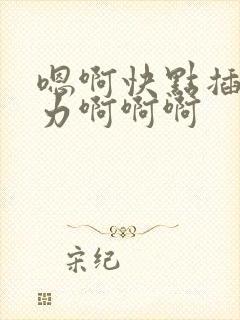 嗯啊快點插
力啊啊啊
宋纪